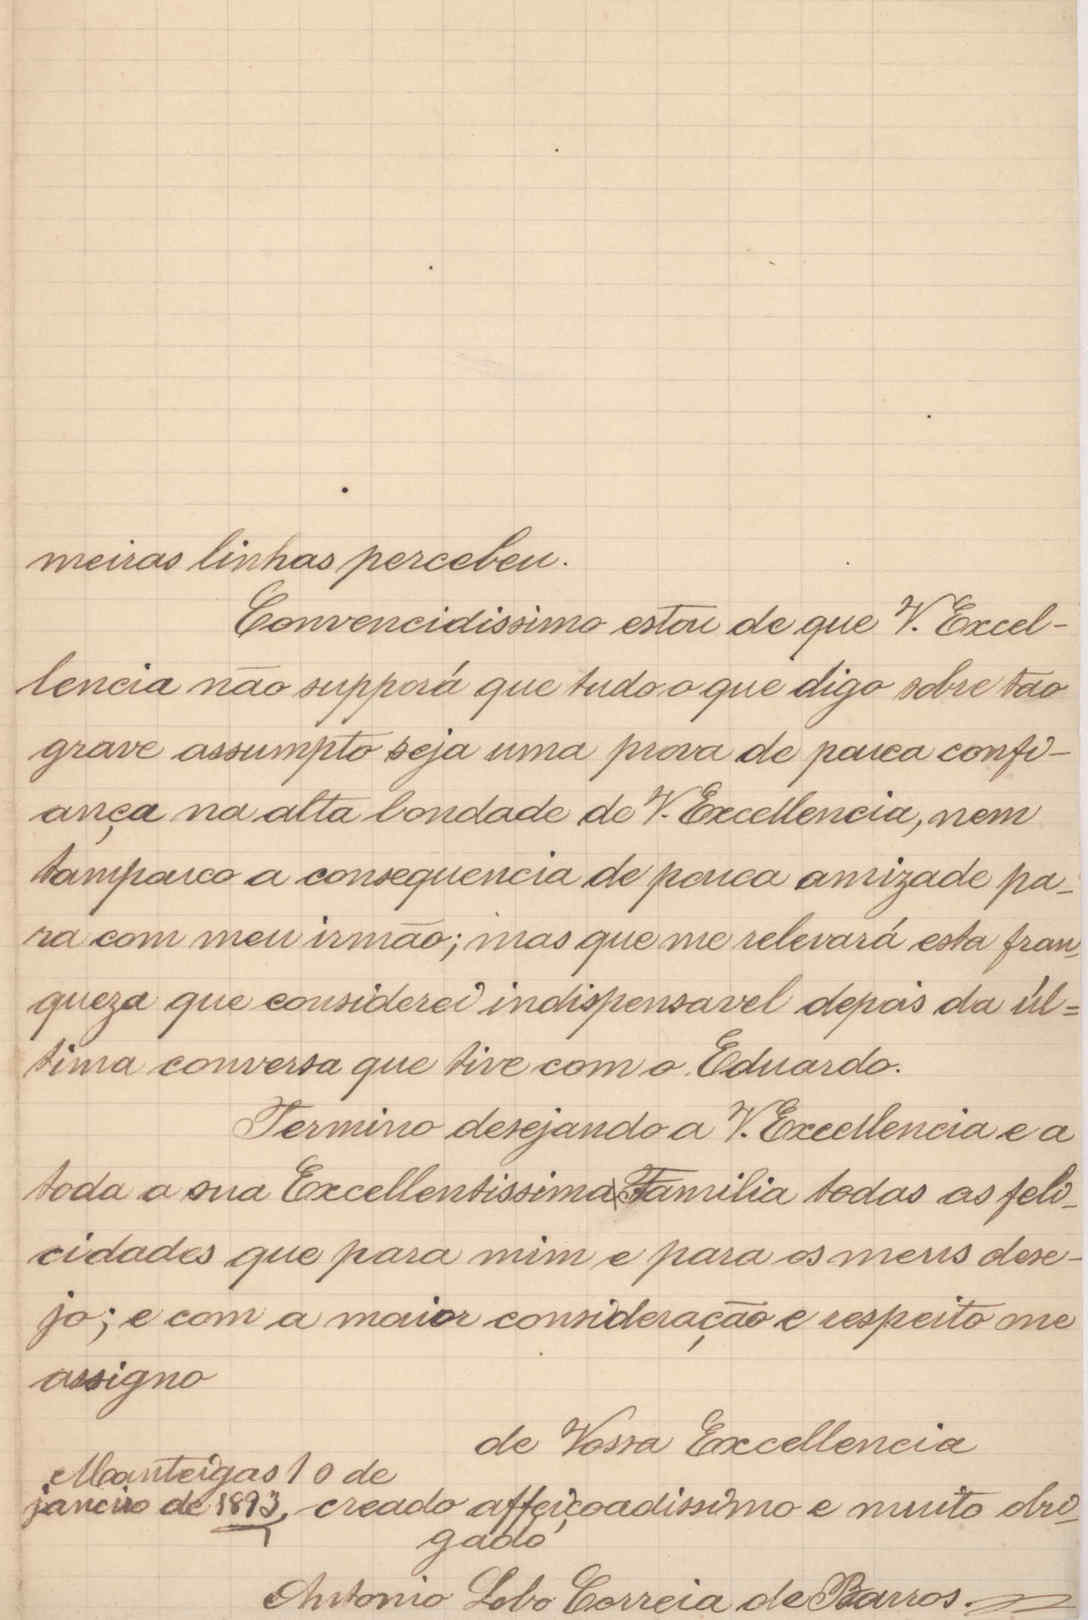 meiras linhas percebeu.
Convencidissimo estou de que V. Excel-
lencia não supporá que tudo o que digo sobre tão
grave assumpto seja uma prova de pouca confi-
ança na alta bondade de V. Excellencia, nem
tampouco a consequencia de pouca amizade pa-
ra com meu irmão; mas que me relevará esta fran-
queza que considerei indispensavel depois da úl=
tima conversa que tive com o Eduardo.
Termino desejando a V. Excellencia e a
toda a sua Excellentissima Familia todas as feli-
cidades que para mim e para os meus dese-
jo; e com a maior consideração e respeito me
assigno
de Vossa Excellencia
Manteigas 10 de
janeiro de 1893, creado affeiçoadissimo e muito obri-
gado
Antonio Lobo Correia de Barros.